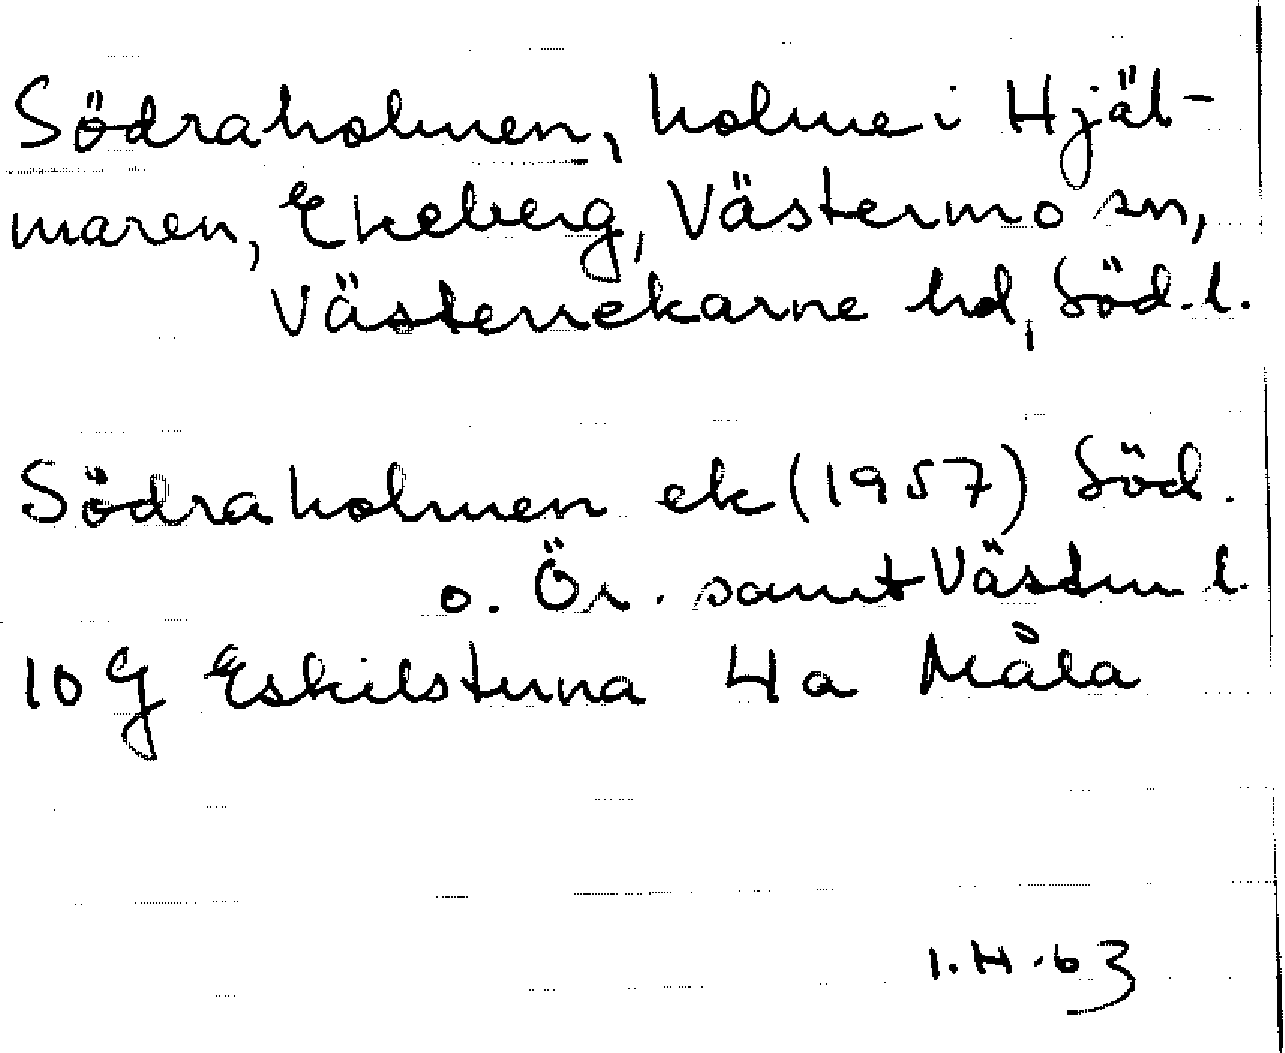 Södraholmen, holme i Hjäl-
maren, Ekeberg, Västermo sn,
Västerrekarne hd, Söd. l.
Södraholmen ek (1957) Söd.
o. Ör. samt Västm l.
10 g Eskilstuna 4a Måla
1.H.63